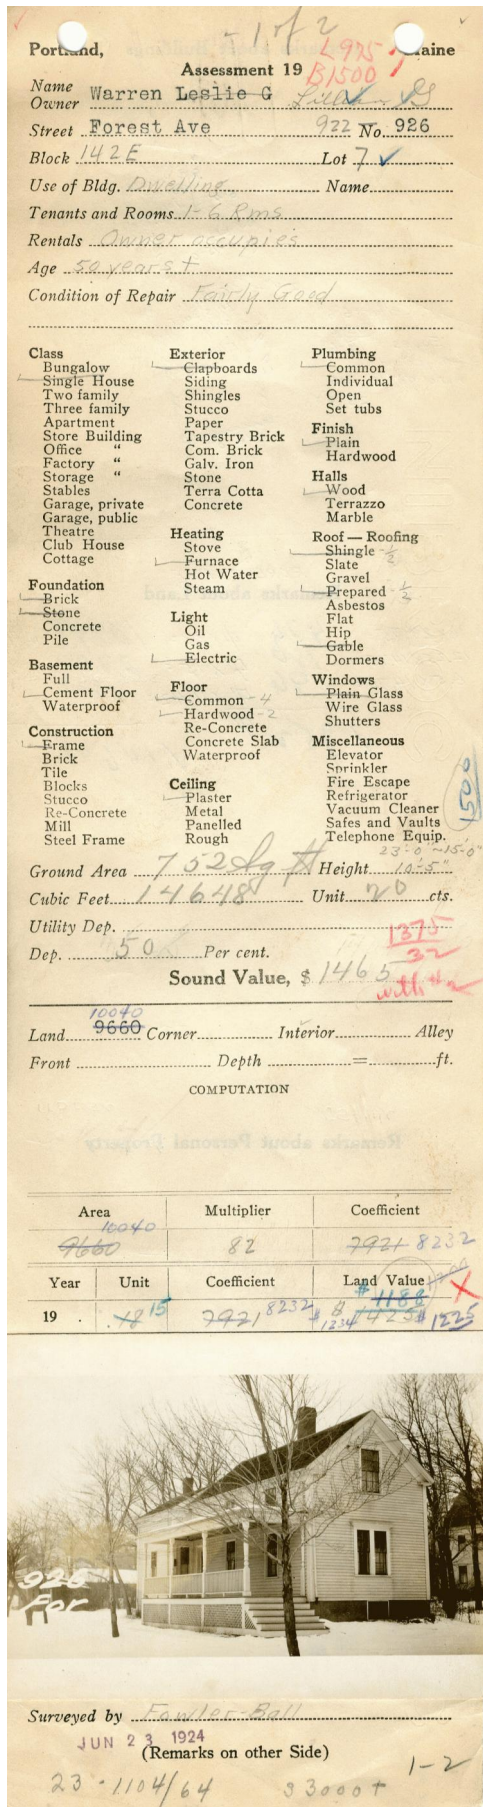 - 1 of 2
Portland, Maine
L975
Assessment 19
B1500
Name Owner Warren Leslie G
Street Forest Ave 922 No. 926
Block 142E Lot 7
Use of Bldg. Dwelling Name
Tenants and Rooms 1-6 Rms
Rentals Owner occupies
Age 50 years +
Condition of Repair Fairly Good
Class
Bungalow
Single House
Two family
Three family
Apartment
Store Building
Office "
Factory "
Storage "
Stables
Garage, private
Garage, public
Theatre
Club House
Cottage
Foundation
Brick
Stone
Concrete
Pile
Basement
Full
Cement Floor
Waterproof
Construction
Frame
Brick
Tile
Blocks
Stucco
Re-Concrete
Mill
Steel Frame
Exterior
Clapboards
Siding
Shingles
Stucco
Paper
Tapestry Brick
Com. Brick
Galv. Iron
Stone
Terra Cotta
Concrete
Heating
Stove
Furnace
Hot Water
Steam
Light
Oil
Gas
Electric
Floor
Common - 4
Hardwood - 2
Re-Concrete
Concrete Slab
Waterproof
Ceiling
Plaster
Metal
Panelled
Rough
Plumbing
Common
Individual
Open
Set tubs
Finish
Plain
Hardwood
Halls
Wood
Terrazzo
Marble
Roof — Roofing
Shingle - ½
Slate
Gravel
Prepared - ½
Asbestos
Flat
Hip
Gable
Dormers
Windows
Plain Glass
Wire Glass
Shutters
Miscellaneous
Elevator
Sprinkler
Fire Escape
Refrigerator
Vacuum Cleaner
Safes and Vaults
Telephone Equip.
1500
23'-0" - 15'-0"
Ground Area 752 Sq ft Height 10'-5"
Cubic Feet 14648 Unit 20 cts.
Utility Dep.
1375
Dep. 50 Per cent.
32
Sound Value, $ 1465
with #2
10040
Land 9660 Corner Interior Alley
Front Depth = ft.
COMPUTATION
Area Multiplier Coefficient
10040
9660 82 7921 8232
Year Unit Coefficient Land Value
$1188
19 . .18 15 7921 8232 $1234 $1425 $1225
926
For
Surveyed by Fowler-Ball
JUN 23 1924
(Remarks on other Side)
1-2
23-1104/64 33000+